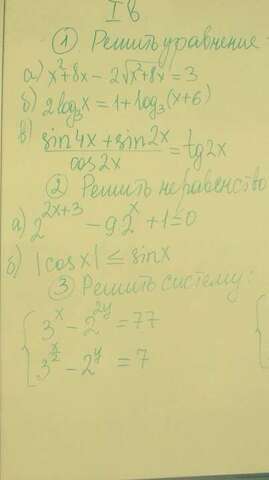 I В
① Решить уравнение:
а) x²+8x - 2√x²+8x = 3
б) 2log₃x = 1+log₃(x+6)
в) (sin4x + sin2x)/cos2x = tg2x
② Решить неравенство
а) 2^(2x+3) - 9·2^x + 1 ≤ 0
б) |cosx| ≤ sinx
③ Решить систему:
{ 3^x - 2^(2y) = 77
3^(x/2) - 2^y = 7